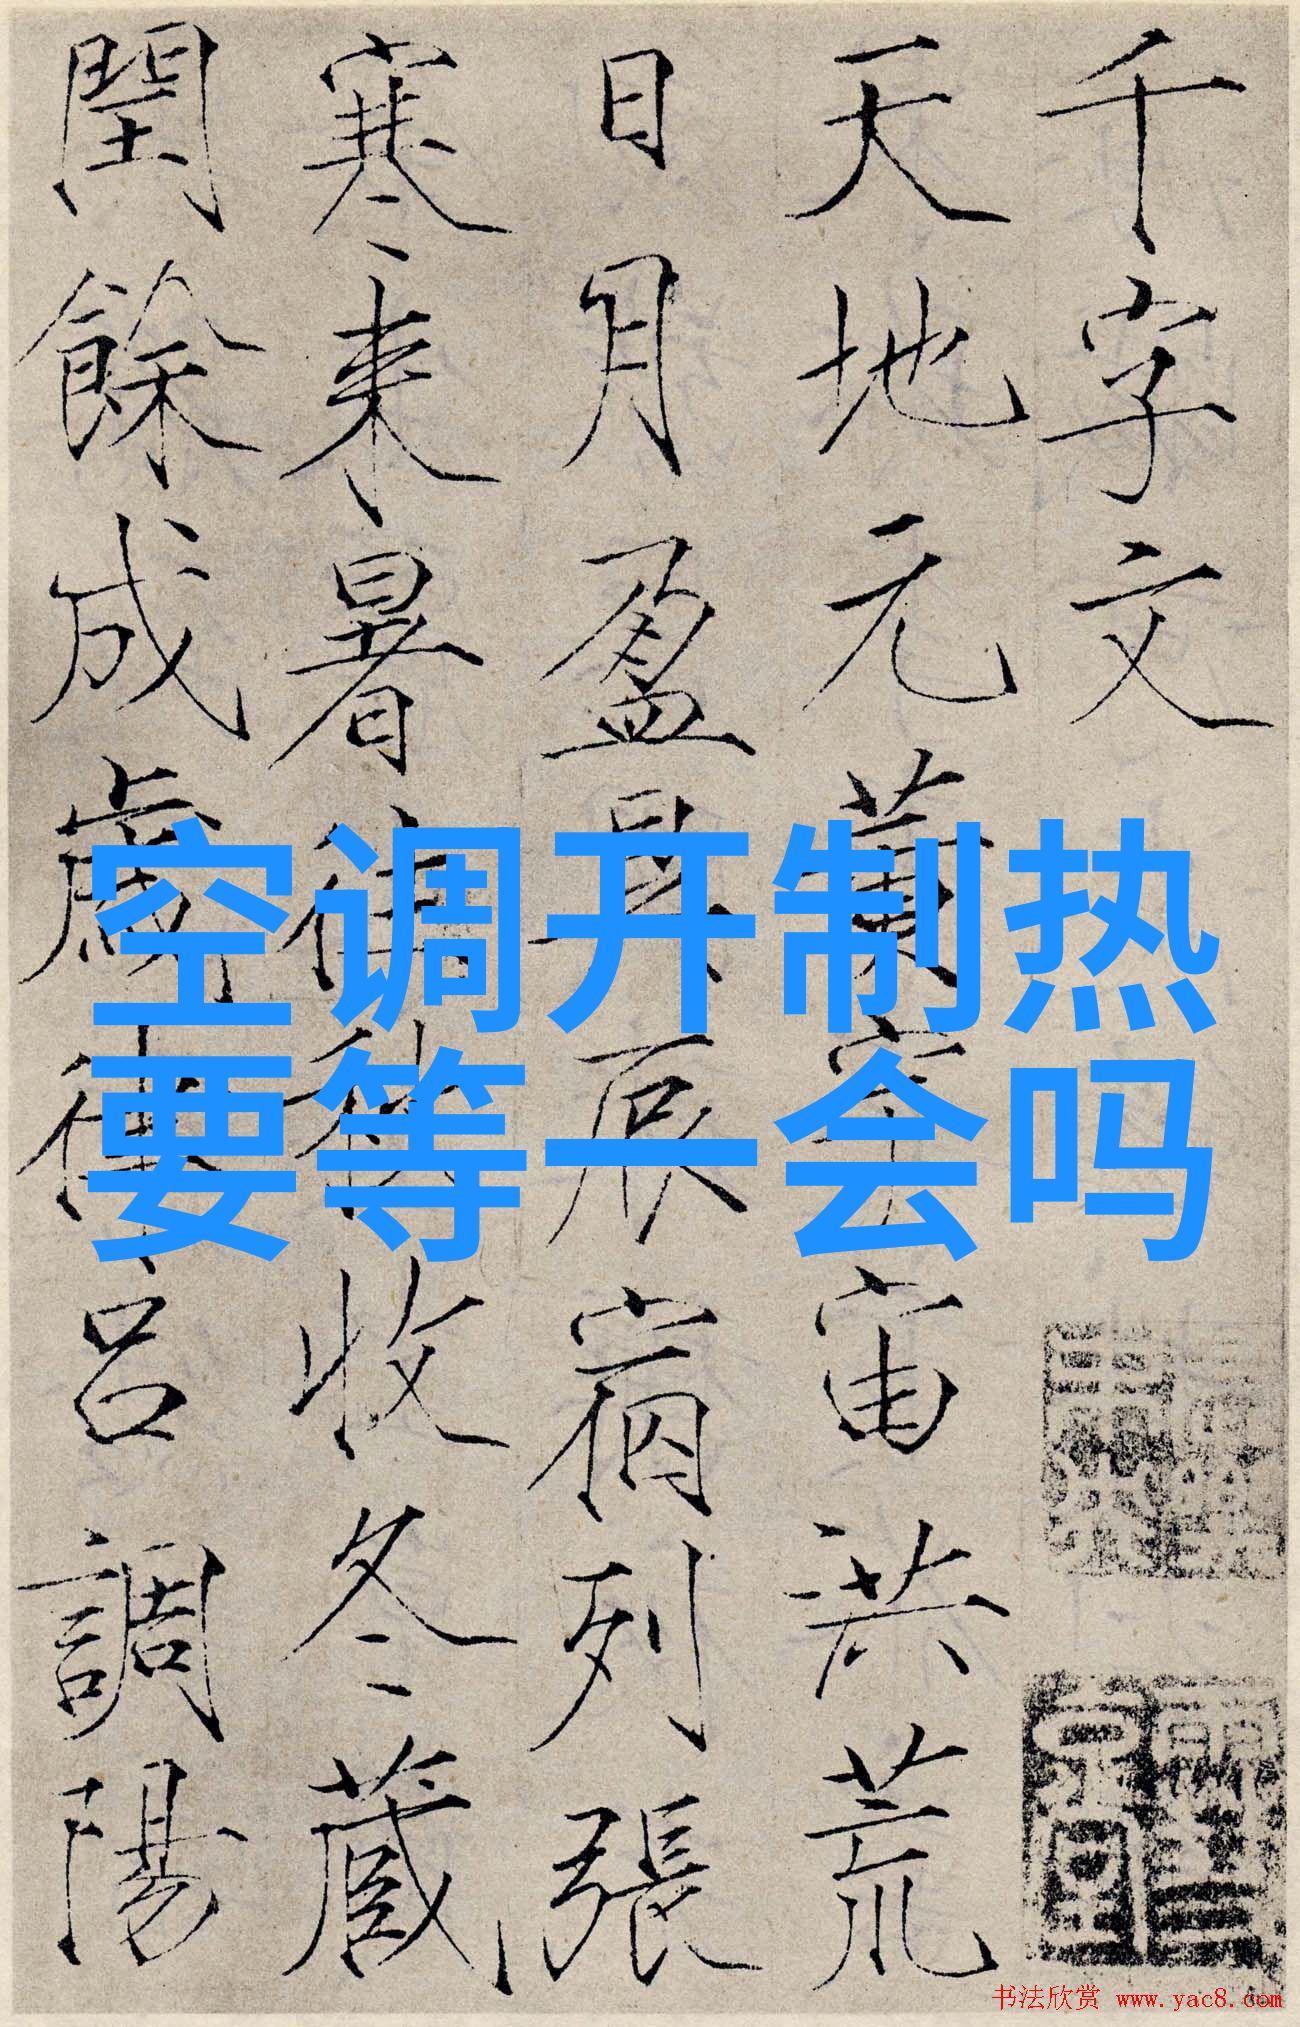 千字文
天地元黃宇宙洪荒
日月盈昃辰宿列張
寒来暑往秋收冬藏
閏餘成歲律呂調陽
空调开制热
要等一会吗
书法欣赏 www.yac8.com